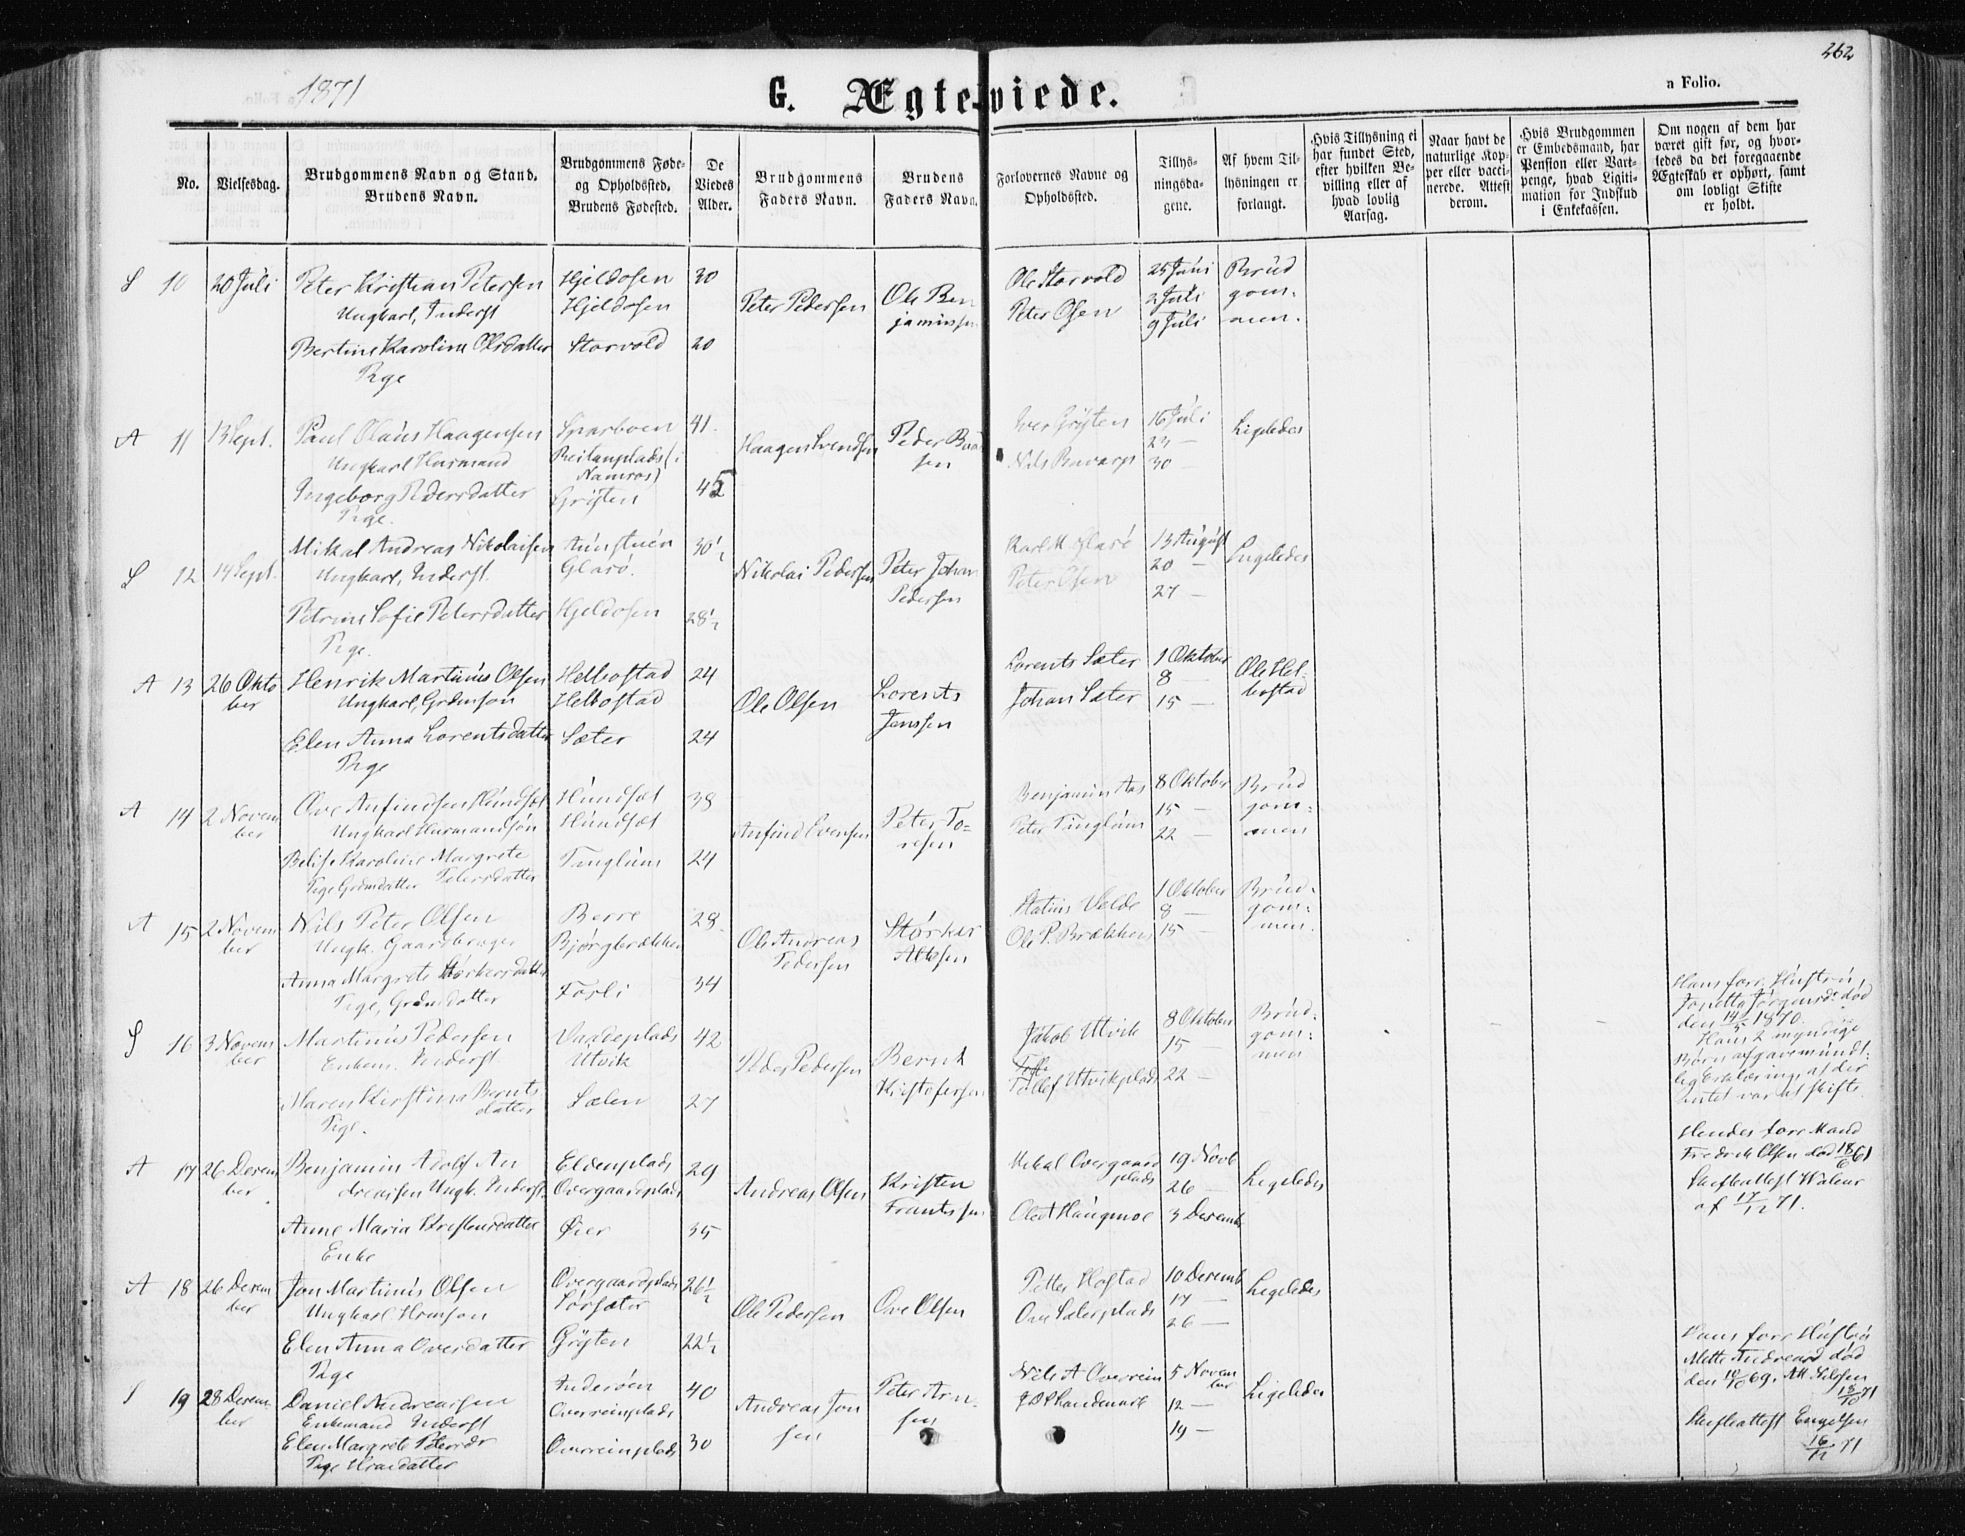 1871
G. Ægteviede.
262
a Folio.
No.
Vielsesdag.
Brudgommens Navn og Stand.
Brudens Navn.
Brudgommens Føde-
og Opholdssted.
Brudens Fødested.
De
Viedes
Alder.
Brudgommens
Faders Navn.
Brudens
Faders Navn.
Forlovernes Navne og
Opholdssted.
Tillys-
ningsda-
gene.
Af hvem Til-
lysningen er
forlangt.
Hvis Tillysning ei
har fundet Sted,
efter hvilken Be-
villing eller af
hvad lovlig
Aarsag.
Naar havt de
naturlige Kop-
per eller vacci-
nerede. Attest
derom.
Hvis Brudgommen
er Embedsmand, har
Pension eller Vart-
penge, hvad Legiti-
mation for Indskud
i Enkekassen.
Om nogen af dem har
været gift før, og hvor-
ledes da det foregaaende
Ægteskab er ophørt, samt
om lovligt Skifte
er holdt.
S 10 20 Juli
Peter Kristian Petersen
Ungkarl, Inderst
Bertine Karoline Olsdatter
Pige
Hjeldosen
Hjeldosen
Storvold
30
20
Peter Pedersen
Ole Ben
jaminsen
Ole Storvold
Peter Olsen
25 Juni
2 Juli
9 Juli
Brud
gom-
men.
A 11 13 Sept.
Paul Olaus Haagensen
Ungkarl Husmand
Ingeborg Pedersdatter
Pige.
Sparboen
Reitanplads (i
Namsos)
Grÿten
41.
45
Haagen Svendsen
Peder
sen
Iver Grÿten
Nils
16 Juli
23 —
30 —
Ligeledes
S 12 14 Sept.
Mikal Andreas Nikolaisen
Ungkarl, Inderst.
Petrine Sofie Petersdatter
Pige.
Aunstuen
Glarö.
Hjeldosen
30½
28½
Nikolai Pedersen
Peter Johan
Pedersen
Karl M. Glarö
Peter Olsen
13 August
20 —
27 —
Ligeledes
A 13 26 Okto
ber
Henrik Martinus Olsen
Ungkarl, Grdmsøn
Elen Anna Lorentsdatter
Pige
Helbostad
Helbostad
Sæter
24
24
Ole Olsen
Lorents
Jenssen
Lorents Sæter
Johan Sæter
1 Oktober
8 —
15 —
Ole Hel-
bostad
A 14 2 Novem
ber
Ove Anfindsen Hundsæt
Ungkarl Husmandsøn
Karoline Margrete
Pige Grdmdatter Petersdatter
Hundsæt
Hundsæt
Tinglum
38
24
Anfind Evensen
Peter To=
resen
Benjamin Aas
Peter Tinglum
8 Oktober
15 —
22 —
Brud
gom=
men
A 15 2 Novem
ber
Nils Peter Olsen
Ungk. Gaardbruger
Anna Margrete Størkersdatter
Pige, Grdmdatter
Berre
Bjørgbrækken
Fosli
28.
34
Ole Andreas
Pedersen
Størker
Statius Velde
Ole P. Brækken
1 Oktober
8 —
15 —
Brud-
gom-
men.
S 16 3 Novem
ber
Martinus Pedersen
Enkem. Inderst
Maren Kirstina Bernts
datter
Pige.
Vaadeplads
Utvik
Sælen
42
27
Peder Pedersen
Bernt
Kristofersen
Jakob Utvik
Tollef Utvikplads
8 Oktober
15 —
22 —
Brud-
gom-
men
Hans forr. Hustru,
Jonetta Jørgensdr. död
den 14/5 1870.
Hans 2 myndige
Børn afgave mundt-
lig Erklæring at der
intet var at skifte.
A 17 26 Decem
ber
Benjamin Adolf An
dreassen Ungk. Inderst
Anne Maria Kristensdatter
Enke
Eldenplads
Overgaardsplads
Øier
29
35
Andreas Olsen
Kristen
Frantssen
Mikal Overgaards
plads
Ole A Haugmo
19 Novb
26 —
3 Decemb
Ligeledes
Hendes forr Mand
Fredrik Olsen död 18/6 61
Skifteattest
af 17/12 71.
A 18 26 Decem
ber
Jon Martinus Olsen
Ungkarl Hsmsøn
Elen Anna Ovesdatter
Pige
Overgaardsplads
Sørsæter
Grÿten
26½
22½
Ole Pedersen
Ove Olsen
Petter Hofstad
Ove Sæterplads
10 Decemb
17 —
26 —
Ligeledes
S 19 28 Decem
ber
Daniel Andreassen
Enkemand Inderst
Elen Margrete Petersdr
Pige Hsmdatter
Inderøen
Overreinplads
Overreinplads
40
30
Andreas Jon
sen
Peter Arn-
sen
Nils A Overrein
5 Novem
ber
12 —
19 —
Ligeledes
Hans forr Hustru
Mette Andreasd död
den
Skifteattest Engelsen
16/12 71